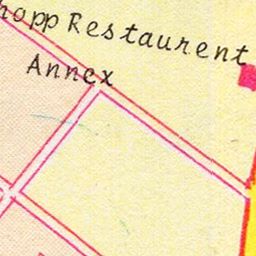 hopp Restaurent
Annex